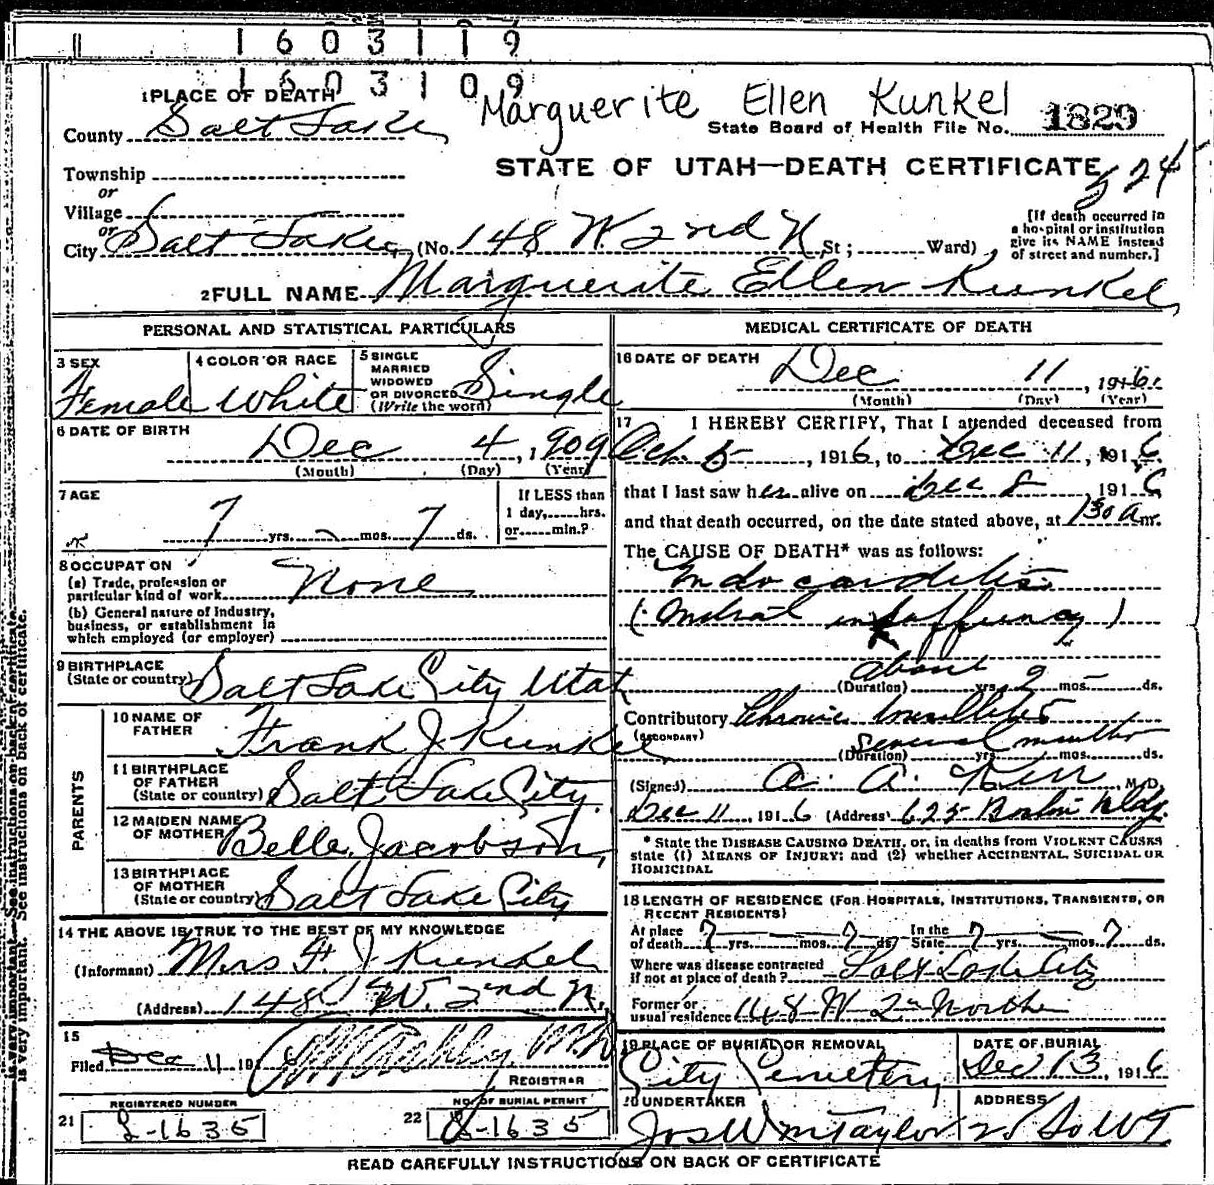 1603119
1603109
Marguerite Ellen Kunkel
1 PLACE OF DEATH
County Salt Lake
State Board of Health File No. 1829
STATE OF UTAH—DEATH CERTIFICATE
524
Township
or
Village
or
City Salt Lake, (No. 148 W. 2nd N St; Ward)
[If death occurred in a hospital or institution give its NAME instead of street and number.]
2 FULL NAME Marguerite Ellen Kunkel
PERSONAL AND STATISTICAL PARTICULARS
3 SEX Female
4 COLOR OR RACE White
5 SINGLE MARRIED WIDOWED OR DIVORCED (Write the word) Single
6 DATE OF BIRTH Dec 4, 1909
(Month) (Day) (Year)
7 AGE 7 yrs. – mos. 7 ds.
If LESS than 1 day, hrs. or min.?
8 OCCUPATION
(a) Trade, profession or particular kind of work None
(b) General nature of Industry, business, or establishment in which employed (or employer)
9 BIRTHPLACE (State or country) Salt Lake City Utah
PARENTS
10 NAME OF FATHER Frank J. Kunkel
11 BIRTHPLACE OF FATHER (State or country) Salt Lake City
12 MAIDEN NAME OF MOTHER Belle Jacobson,
13 BIRTHPLACE OF MOTHER (State or country) Salt Lake City
14 THE ABOVE IS TRUE TO THE BEST OF MY KNOWLEDGE
(Informant) Mrs F. J Kunkel
(Address) 148 W. 2nd N.
15
Filed Dec 11 191 6
REGISTRAR
21 REGISTERED NUMBER 2-1635
22 NO. OF BURIAL PERMIT 2-1635
MEDICAL CERTIFICATE OF DEATH
16 DATE OF DEATH Dec 11, 1916
(Month) (Day) (Year)
17 I HEREBY CERTIFY, That I attended deceased from
Oct. 5, 1916, to Dec 11, 1916
that I last saw her alive on Dec 8 1916
and that death occurred, on the date stated above, at 130 A m.
The CAUSE OF DEATH* was as follows:
Endocarditis
(Mitral insufficiency)
about
(Duration) yrs. 2 mos. – ds.
Contributory Chronic
(SECONDARY)
several months
(Duration) yrs. mos. ds.
(Signed) A. A. Kerr M.D.
Dec 11, 1916 (Address) 625 Boston bldg.
* State the DISEASE CAUSING DEATH, or, in deaths from VIOLENT CAUSES
state (1) MEANS OF INJURY; and (2) whether ACCIDENTAL, SUICIDAL OR
HOMICIDAL
18 LENGTH OF RESIDENCE (FOR HOSPITALS, INSTITUTIONS, TRANSIENTS, OR
RECENT RESIDENTS)
At place of death 7 yrs. – mos. 7 ds. In the State 7 yrs. – mos. 7 ds.
Where was disease contracted if not at place of death? Salt Lake City
Former or usual residence 148 W 2n North
19 PLACE OF BURIAL OR REMOVAL City Cemetery
DATE OF BURIAL Dec 13, 1916
20 UNDERTAKER Jos Wm Taylor
ADDRESS 21 So W T
READ CAREFULLY INSTRUCTIONS ON BACK OF CERTIFICATE
is very important. See instructions on back of certificate.